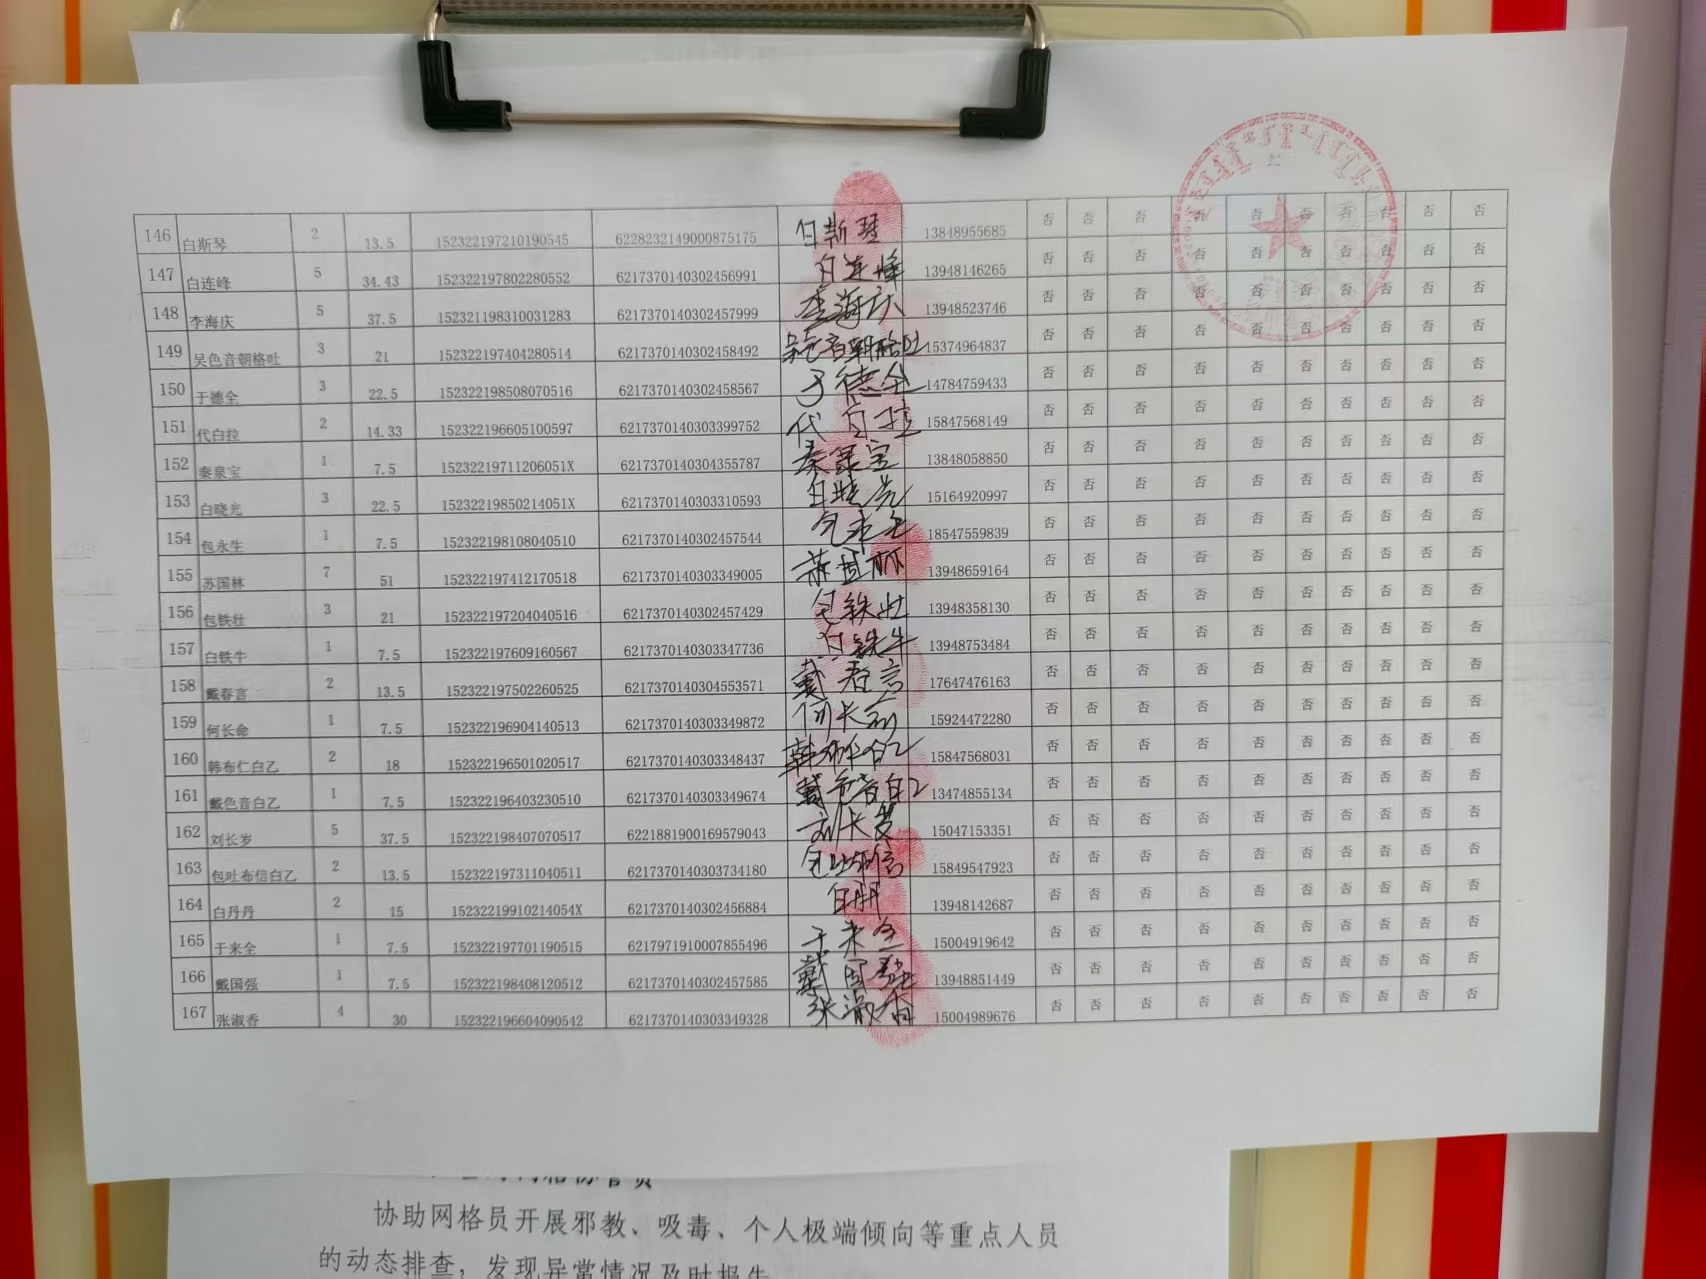 146 白斯琴 2 13.5 152322197210190545 6228232149000875175 白斯琴 13848955685 否 否 否 否 否 否 否 否 否 否
147 白连峰 5 34.43 152322197802280552 6217370140302456991 白连峰 13948146265 否 否 否 否 否 否 否 否 否 否
148 李海庆 5 37.5 152321198310031283 6217370140302457999 李海庆 13948523746 否 否 否 否 否 否 否 否 否 否
149 吴色音朝格吐 3 21 152322197404280514 6217370140302458492 15374964837 否 否 否 否 否 否 否 否 否 否
150 于德全 3 22.5 152322198508070516 6217370140302458567 于德全 14784759433 否 否 否 否 否 否 否 否 否 否
151 代白拉 2 14.33 152322196605100597 6217370140303399752 代白拉 15847568149 否 否 否 否 否 否 否 否 否 否
152 秦泉宝 1 7.5 15232219711206051X 6217370140304355787 秦泉宝 13848058850 否 否 否 否 否 否 否 否 否 否
153 白晓光 3 22.5 15232219850214051X 6217370140303310593 白晓光 15164920997 否 否 否 否 否 否 否 否 否 否
154 包永生 1 7.5 152322198108040510 6217370140302457544 包永生 18547559839 否 否 否 否 否 否 否 否 否 否
155 苏国林 7 51 152322197412170518 6217370140303349005 苏国林 13948659164 否 否 否 否 否 否 否 否 否 否
156 包铁壮 3 21 152322197204040516 6217370140302457429 包铁壮 13948358130 否 否 否 否 否 否 否 否 否 否
157 白铁牛 1 7.5 152322197609160567 6217370140303347736 白铁牛 13948753484 否 否 否 否 否 否 否 否 否 否
158 戴春言 2 13.5 152322197502260525 6217370140304553571 戴春言 17647476163 否 否 否 否 否 否 否 否 否 否
159 何长命 1 7.5 152322196904140513 6217370140303349872 何长命 15924472280 否 否 否 否 否 否 否 否 否 否
160 韩布仁白乙 2 18 152322196501020517 6217370140303348437 韩布仁白乙 15847568031 否 否 否 否 否 否 否 否 否 否
161 戴色音白乙 1 7.5 152322196403230510 6217370140303349674 戴色音白乙 13474855134 否 否 否 否 否 否 否 否 否 否
162 刘长岁 5 37.5 152322198407070517 6221881900169579043 刘长岁 15047153351 否 否 否 否 否 否 否 否 否 否
163 包吐布信白乙 2 13.5 152322197311040511 6217370140303734180 15849547923 否 否 否 否 否 否 否 否 否 否
164 白丹丹 2 15 15232219910214054X 6217370140302456884 白丹丹 13948142687 否 否 否 否 否 否 否 否 否 否
165 于来全 1 7.5 152322197701190515 6217971910007855496 于来全 15004919642 否 否 否 否 否 否 否 否 否 否
166 戴国强 1 7.5 152322198408120512 6217370140302457585 戴国强 13948851449 否 否 否 否 否 否 否 否 否 否
167 张淑香 4 30 152322196604090542 6217370140303349328 张淑香 15004989676 否 否 否 否 否 否 否 否 否 否
协助网格员开展邪教、吸毒、个人极端倾向等重点人员
的动态排查，发现异常情况及时报告